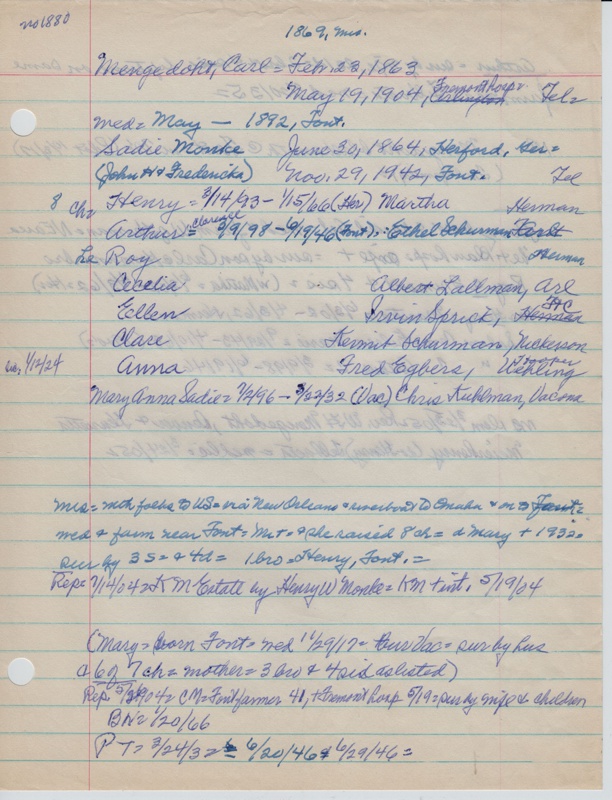 no 1880
1869, mrs.
Mengedoht, Carl = Feb. 23, 1863
May 19, 1904, Fremont hosp. Arlington Tel=
wed = May — 1892, Font.
Sadie Monke June 30, 1864, Herford, Ger=
(John H & Fredericka) Nov. 29, 1942, Font. Tel
8 ch= Henry = 3/14/93 - 1/15/66 (Her) Martha Herman
Arthur = Clarence 5/9/98 - 6/19/46 (Font) : Ethel Schurman Font
Le Roy Herman
Cecelia Albert Lallman, Arl
Ellen Irvin Sprick, Herman
Clare Kermit Schurman, Nickerson
1/12/24 Anna Fred Egbers, Uehling
Mary Anna Sadie = 7/2/96 - 3/22/32 (Vac) Chris Kuhlman, Vacoma
mrs = with folks to US = via New Orleans = riverboat to Omaha & on to Font =
wed & farm near Font = Mr + = & she raised 8 ch = d Mary + 1932 =
sur by 3 s = & 4 d = 1 bro = Henry, Font. =
Rep = 7/14/04 = K M Estate by Henry W Monke = KM + int. 5/19/04
(Mary = born Font = wed 11/29/17 = bur Vac = sur by hus
& 6 of 7 ch = mother = 3 bro & 4 sis as listed)
Rep 5/04 = CM = Font farmer 41, + Fremont hosp 5/19 = sur by wife & children
BN = 1/20/66
PT = 3/24/32 = 6/20/46 & 6/29/46 =